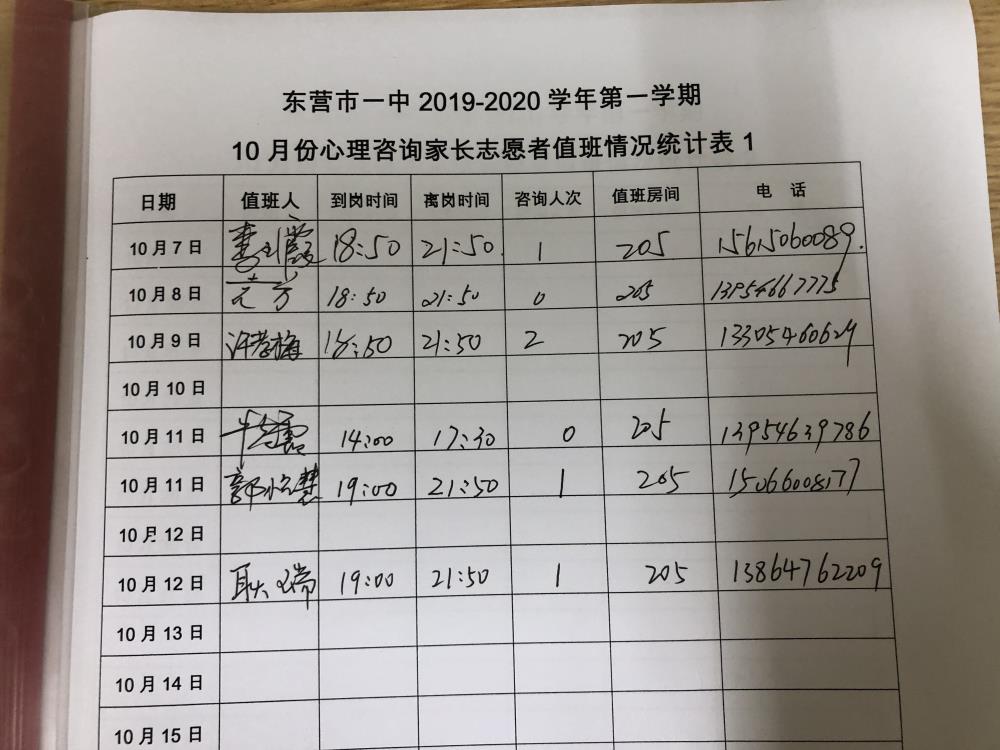 东营市一中 2019-2020 学年第一学期
10 月份心理咨询家长志愿者值班情况统计表 1
日期 值班人 到岗时间 离岗时间 咨询人次 值班房间 电 话
10 月 7 日 18:50 21:50 1 205 15615060089
10 月 8 日 18:50 21:50 0 205 13954667775
10 月 9 日 许孝梅 18:50 21:50 2 205 13305460629
10 月 10 日
10 月 11 日 14:00 17:30 0 205 13954639786
10 月 11 日 19:00 21:50 1 205 15066008177
10 月 12 日
10 月 12 日 耿瑞 19:00 21:50 1 205 13864762209
10 月 13 日
10 月 14 日
10 月 15 日